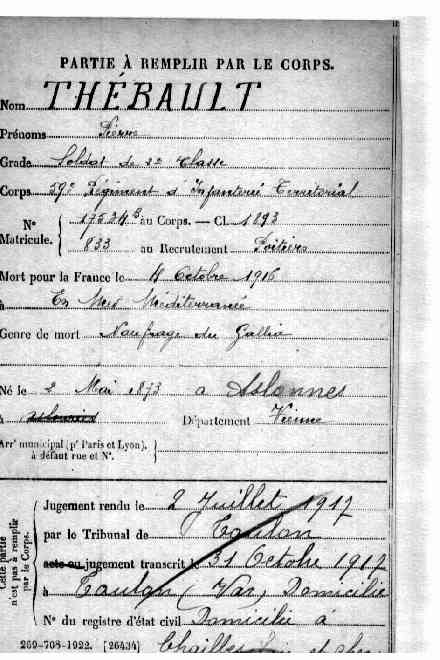 PARTIE À REMPLIR PAR LE CORPS.
Nom THÉBAULT
Prénoms Pierre
Grade Soldat de 2e Classe
Corps 59e Régiment d'Infanterie Territorial
N° Matricule. { 17534 au Corps. — Cl. 1893
833 au Recrutement Poitiers
Mort pour la France le 4 Octobre 1916
à En Mer Méditerranée
Genre de mort Naufrage du Gallia
Né le 2 Mai 1873 à Aslonnes
à Département Vienne
Arrt municipal (pr Paris et Lyon),
à défaut rue et N°.
Cette partie n'est pas à remplir par le Corps.
Jugement rendu le 2 Juillet 1917
par le Tribunal de Toulon
acte ou jugement transcrit le 31 Octobre 1917
à Toulon (Var) Domicilié
N° du registre d'état civil Domicilié à
269-708-1922. [26434]